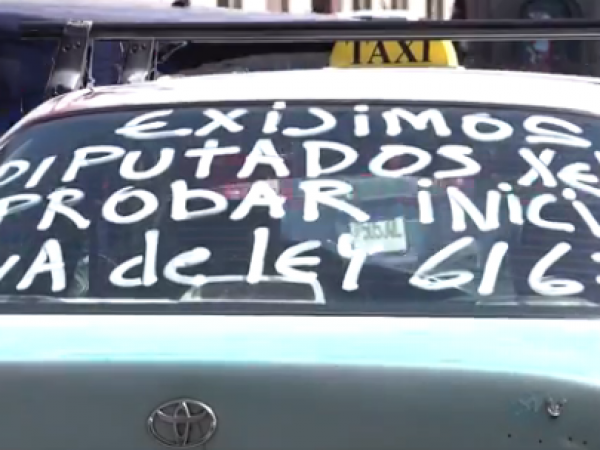 TAXI
EXIJIMOS
DIPUTADOS XE
PROBAR INICI
VA de LEY 616